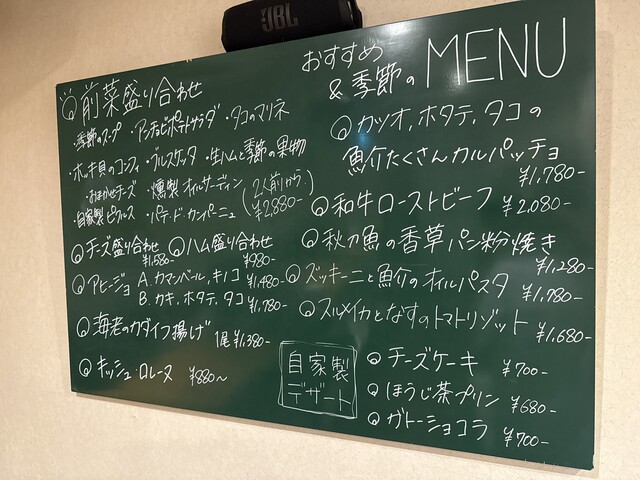 JBL
おすすめ
&季節の MENU
前菜盛り合わせ
・季節のスープ ・アンチョビポテトサラダ ・タコのマリネ
・ホッキ貝のコンフィ ・ブルスケッタ ・生ハムと季節の果物
・おまかせチーズ ・燻製オイルサーディン (2人前から)
・自家製ピクルス ・パテ・ド・カンパーニュ ¥2,880-
チーズ盛り合わせ ハム盛り合わせ
¥1,580- ¥980-
アヒージョ A.カマンベール,キノコ ¥1,480-
B.カキ,ホタテ,タコ ¥1,780-
海老のカダイフ揚げ 1尾¥1,380-
キッシュ・ロレーヌ ¥880〜
カツオ,ホタテ,タコの
魚介たくさんカルパッチョ
¥1,780-
和牛ローストビーフ ¥2,080-
秋刀魚の香草パン粉焼き
¥1,280-
ズッキーニと魚介のオイルパスタ
¥1,780-
スルメイカとなすのトマトリゾット ¥1,680-
自家製
デザート
チーズケーキ ¥700-
ほうじ茶プリン ¥680-
ガトーショコラ ¥700-